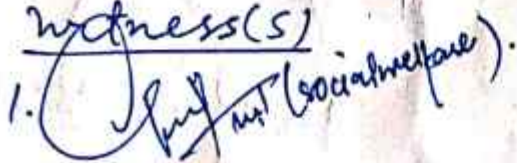 witness(s)
1. (socialwelfare).